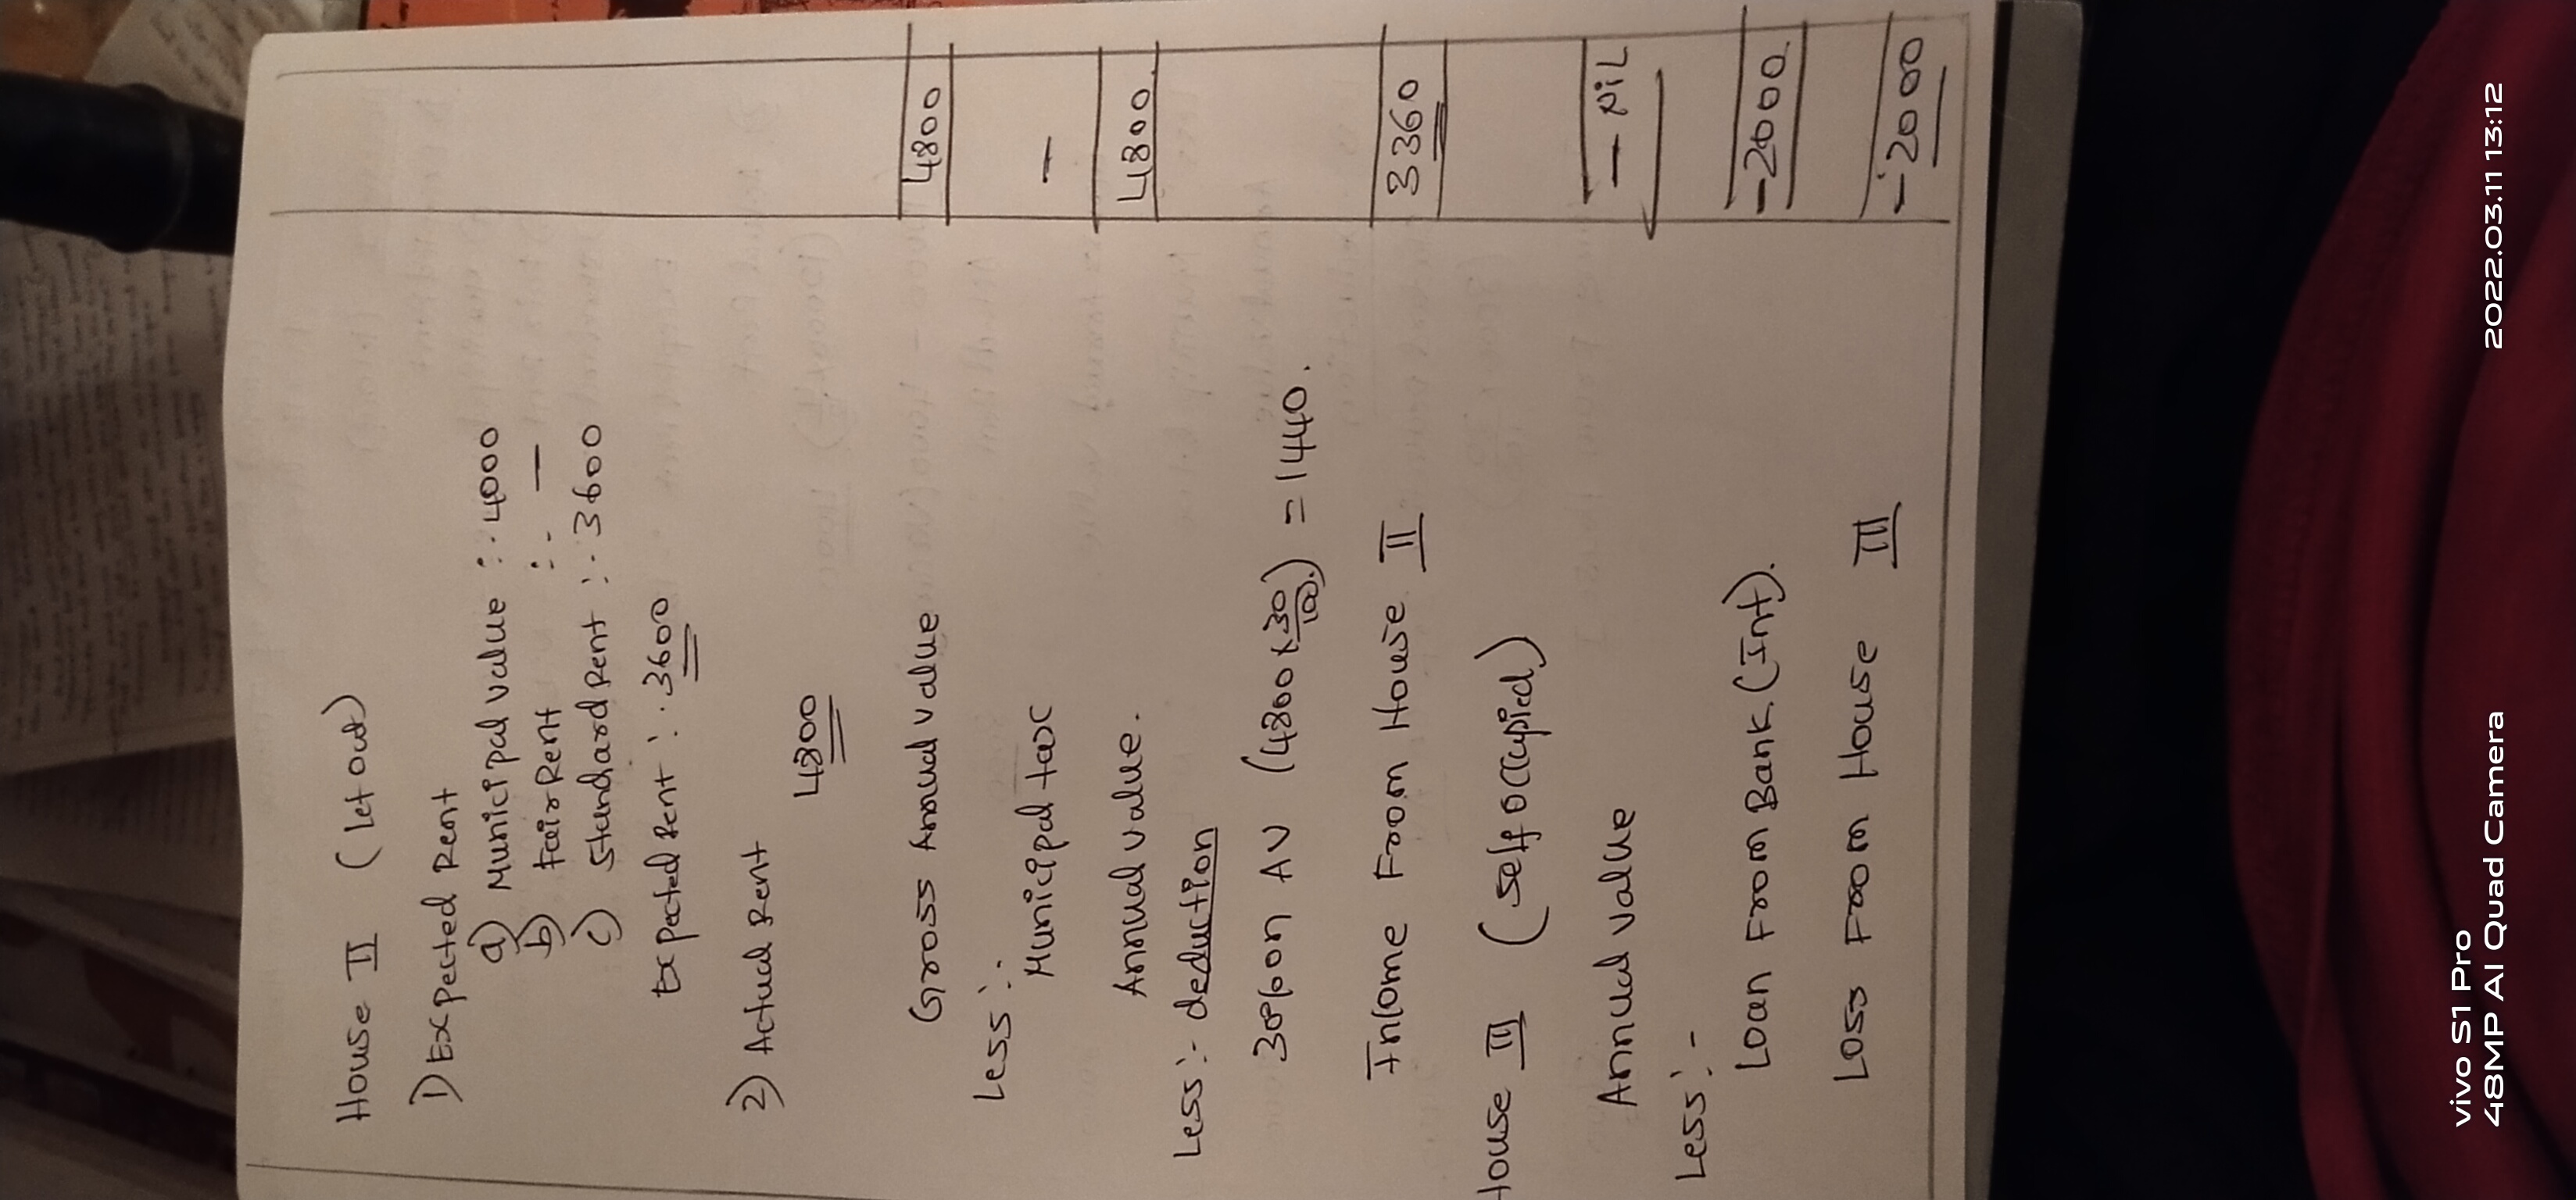 House II (let out)
1) Expected Rent
a) Municipal value :- 4000
b) fair Rent :- —
c) Standard Rent :- 3600
Expected Rent :- 3600
2) Actual Rent
4800
Gross Annual value 4800
Less :-
Municipal tax —
Annual value. 4800
Less :- deduction
30% on AV (4800 x 30/100) = 1440.
Income From House II 3360
House III (self occupied)
Annual value — NiL
Less :-
Loan From Bank (Int). -2000
Loss From House III -2000
vivo S1 Pro
48MP AI Quad Camera 2022.03.11 13:12